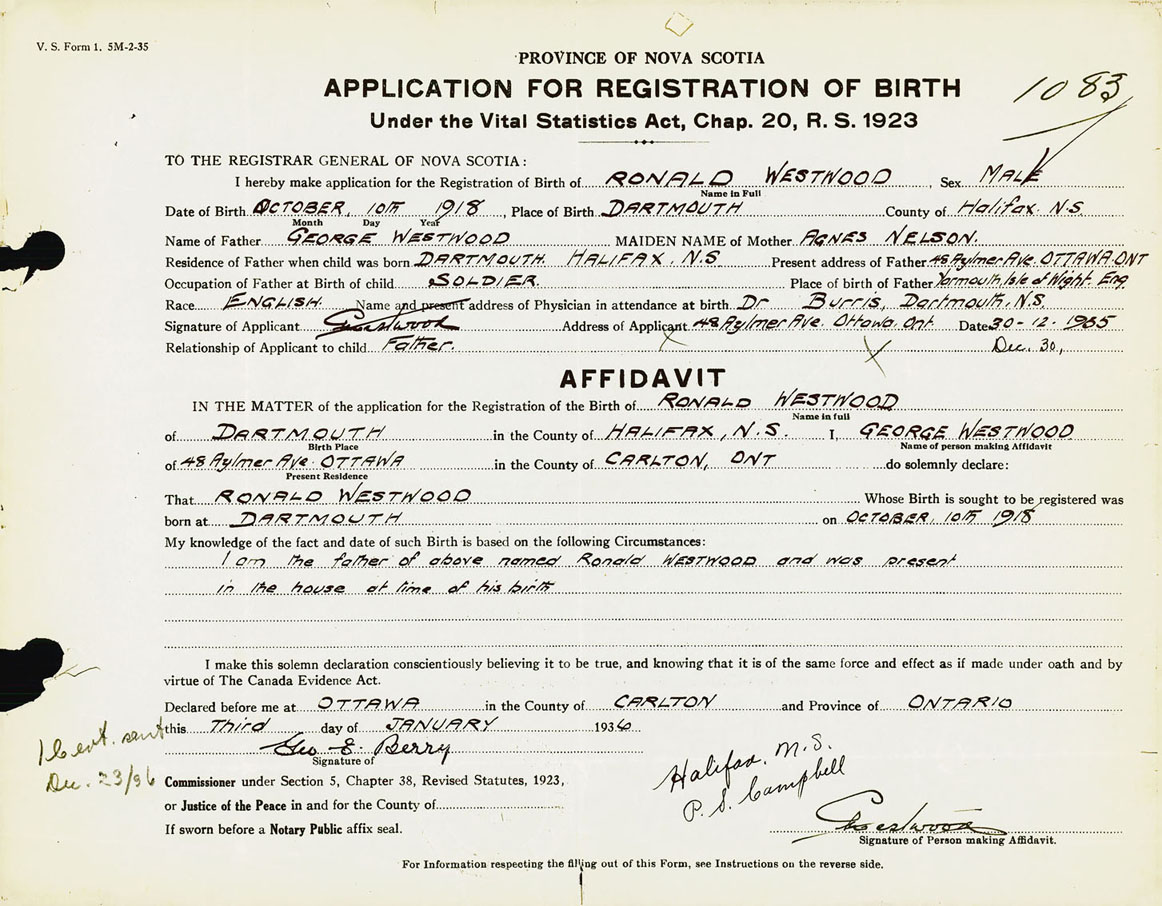 V. S. Form 1. 5M-2-35
PROVINCE OF NOVA SCOTIA
APPLICATION FOR REGISTRATION OF BIRTH
1083
Under the Vital Statistics Act, Chap. 20, R. S. 1923
TO THE REGISTRAR GENERAL OF NOVA SCOTIA:
I hereby make application for the Registration of Birth of RONALD WESTWOOD, Sex MALE
Name in Full
Date of Birth OCTOBER, 10TH 1918, Place of Birth DARTMOUTH County of Halifax. N.S.
Month Day Year
Name of Father GEORGE WESTWOOD MAIDEN NAME of Mother AGNES NELSON.
Residence of Father when child was born DARTMOUTH. HALIFAX. N.S Present address of Father 48 Aylmer Ave. OTTAWA. ONT
Occupation of Father at Birth of child SOLDIER. Place of birth of Father Yarmouth, Isle of Wight. Eng.
Race ENGLISH. Name and present address of Physician in attendance at birth Dr Burris, Dartmouth, N.S.
Signature of Applicant GWestwood Address of Applicant 48 Aylmer Ave. Ottawa. Ont. Date 30-12-1935
Relationship of Applicant to child Father. Dec. 30,
AFFIDAVIT
IN THE MATTER of the application for the Registration of the Birth of RONALD WESTWOOD
Name in full
of DARTMOUTH in the County of HALIFAX, N.S. I, GEORGE WESTWOOD
Birth Place Name of person making Affidavit
of 48 Aylmer Ave. OTTAWA in the County of CARLTON, ONT do solemnly declare:
Present Residence
That RONALD WESTWOOD Whose Birth is sought to be registered was
born at DARTMOUTH on OCTOBER, 10TH 1918
My knowledge of the fact and date of such Birth is based on the following Circumstances:
I am the father of above named Ronald WESTWOOD and was present
in the house at time of his birth
I make this solemn declaration conscientiously believing it to be true, and knowing that it is of the same force and effect as if made under oath and by
virtue of The Canada Evidence Act.
Declared before me at OTTAWA in the County of CARLTON and Province of ONTARIO
this Third day of JANUARY 1936
Geo E. Berry
Signature of
1 Cert. sent
Dec. 23/36
Commissioner under Section 5, Chapter 38, Revised Statutes, 1923,
or Justice of the Peace in and for the County of
If sworn before a Notary Public affix seal.
Halifax, N.S.
P. S. Campbell
GWestwood
Signature of Person making Affidavit.
For Information respecting the filling out of this Form, see Instructions on the reverse side.